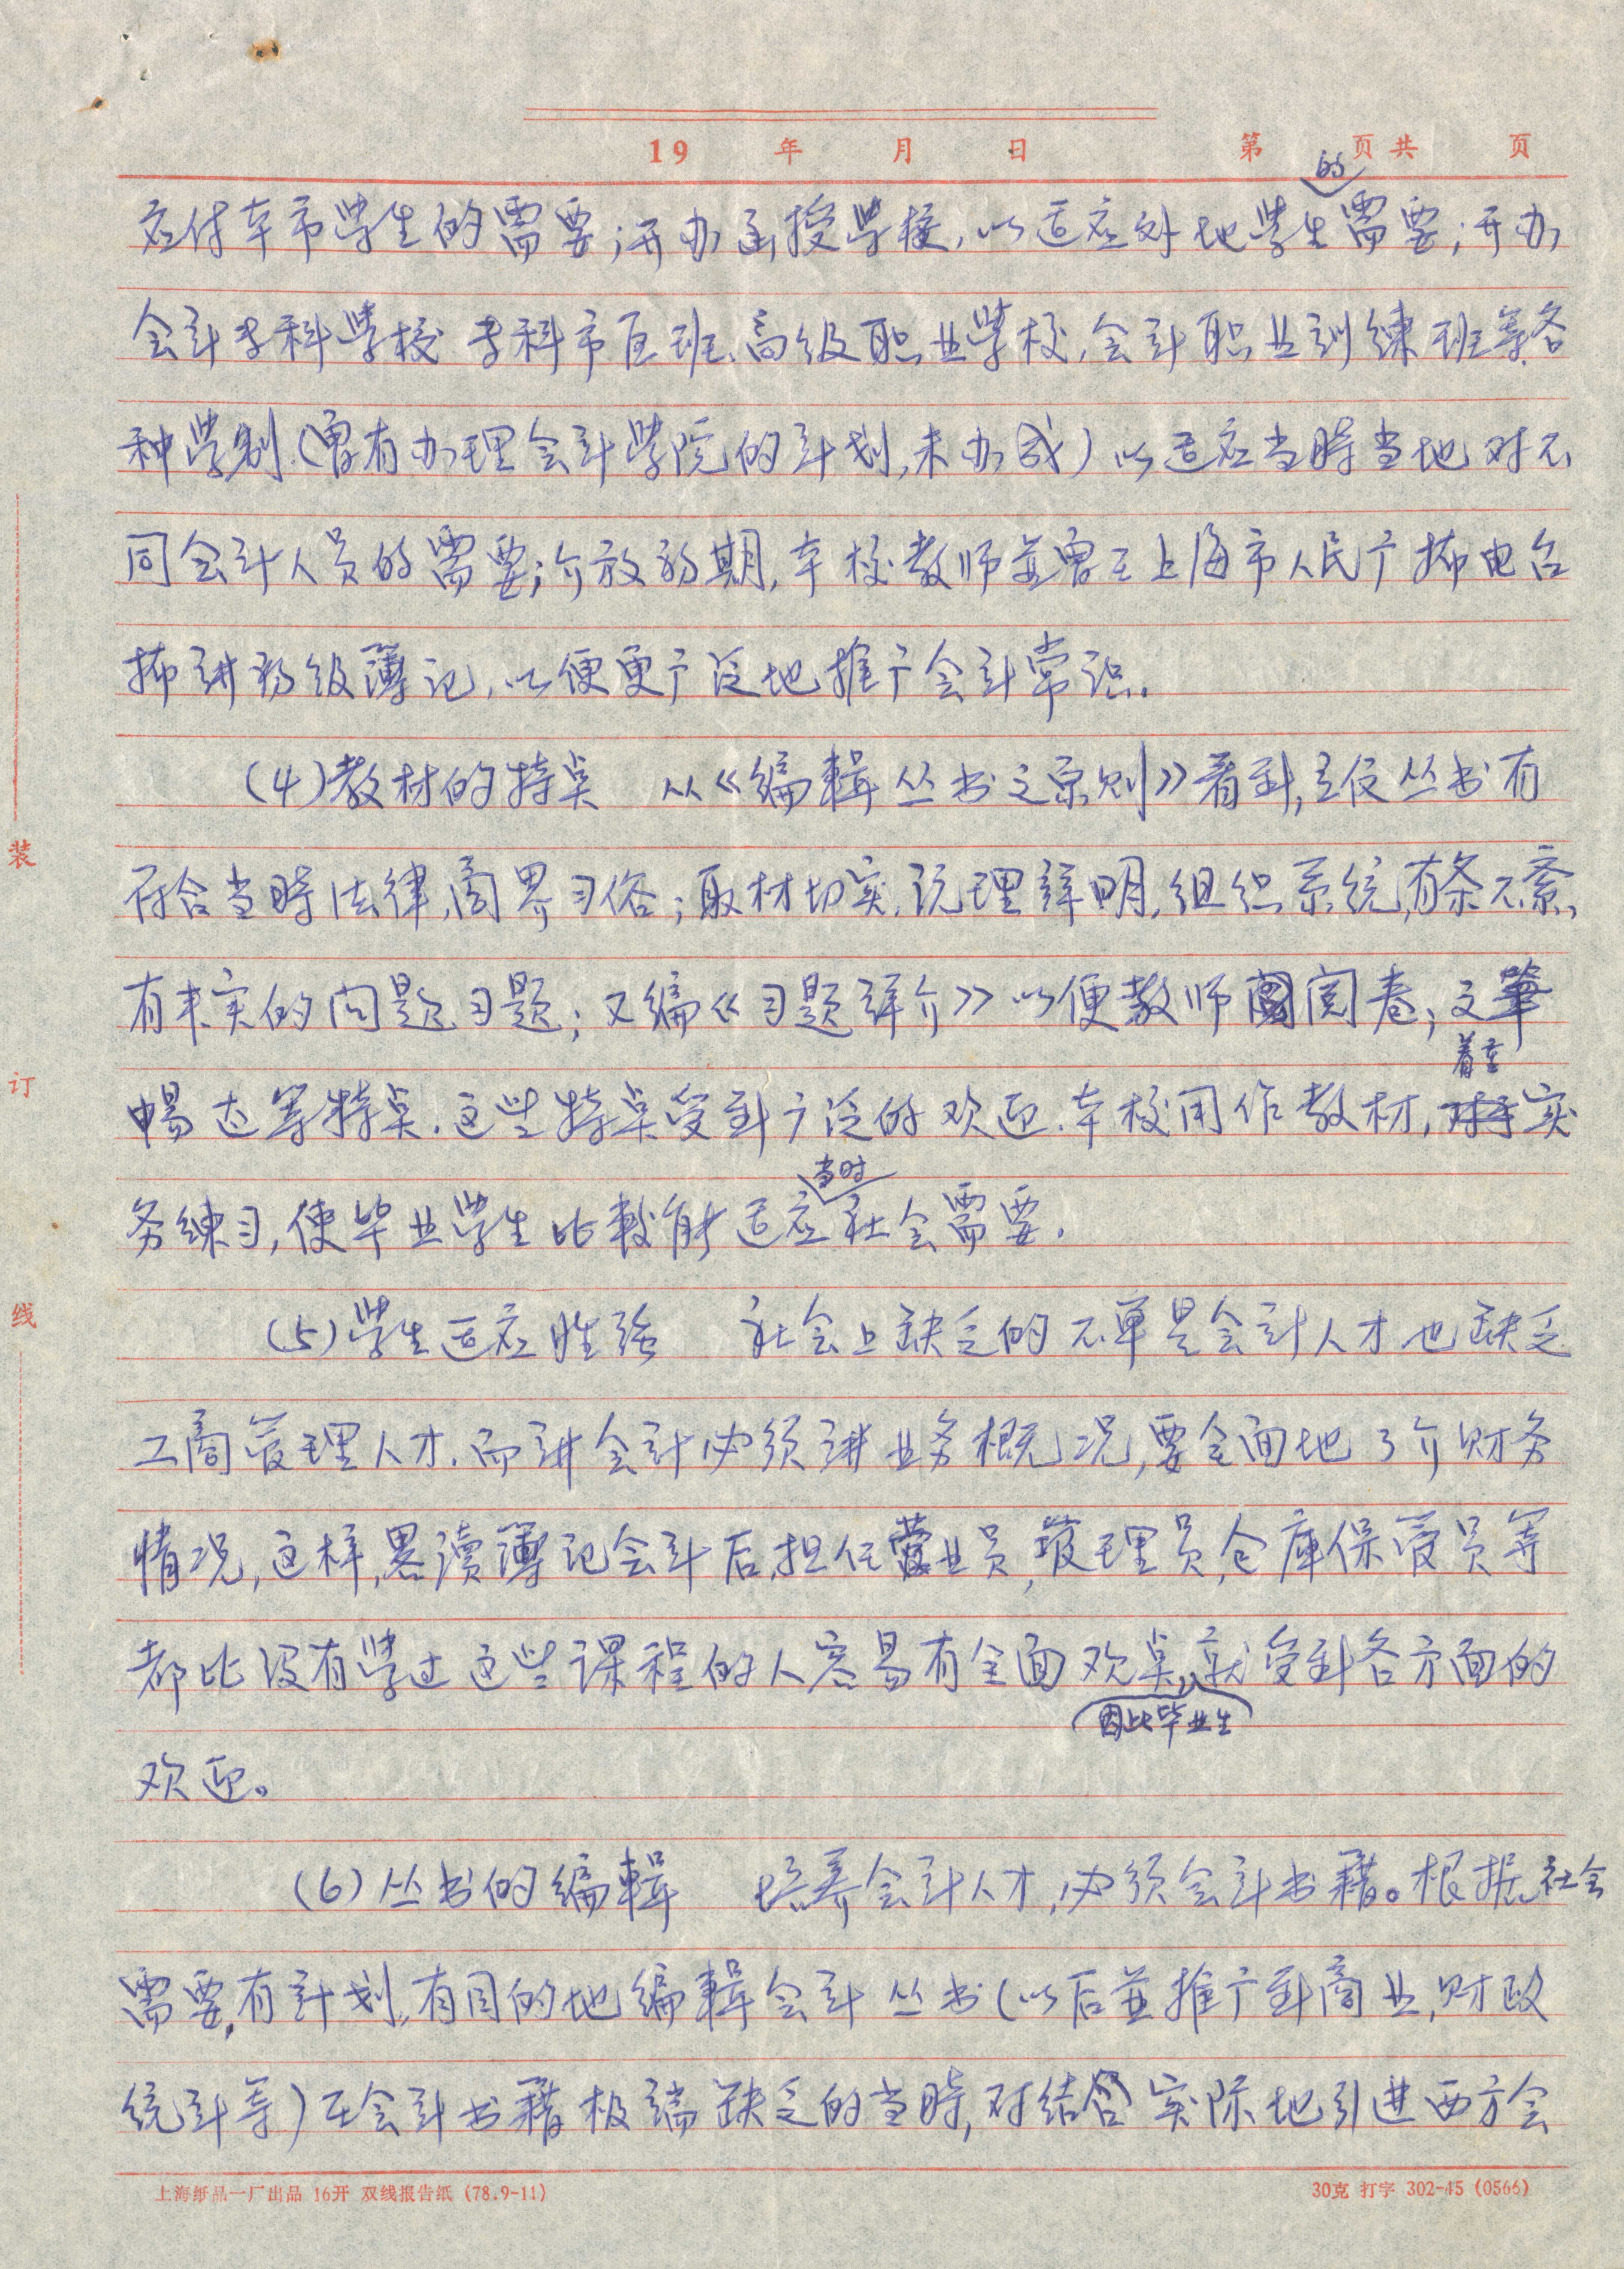 19 年 月 日 第 页共 页
应付本市学生的需要；开办函授学校，以适应外地学生的需要；开办
会计专科学校 专科市区班、高级职业学校，会计职业训练班等各
种学制（曾有办理会计学院的计划，未办成）以适应当時当地对不
同会计人员的需要；介放初期，本校教师並曾在上海市人民广播电台
播讲初级簿记，以便更广泛地推广会计常识。
（4）教材的特点 从《编輯丛书之原则》看到，立信丛书有
符合当時法律，商界习俗；取材切实，说理詳明，组织系统，有条不紊，
有求实的问题习题；又编《习题詳介》以便教师阅卷；文筆
畅达等特点。这些特点受到广泛的欢迎。本校用作教材，着重实
务練习，使毕业学生比較能适应当时社会需要。
（5）学生适应性强 社会上缺乏的不单是会计人才也缺乏
工商管理人才。而讲会计必须讲业务概况，要全面地了介财务
情况，这样，畧读簿记会计后，担任营业员，管理员，仓庫保管员等
都比没有学过这些课程的人容易有全面观点，因此毕业生就受到各方面的
欢迎。
（6）丛书的编輯 培养会计人才，必须会计书籍。根据社会
需要，有計划，有目的地编輯会计丛书（以后並推广到商业，财政
统计等）在会计书籍极端缺乏的当時，对结合实际地引进西方会
装
订
线
上海纸品一厂出品 16开 双线报告纸 (78.9-11) 30克 打字 302-45 (0566)